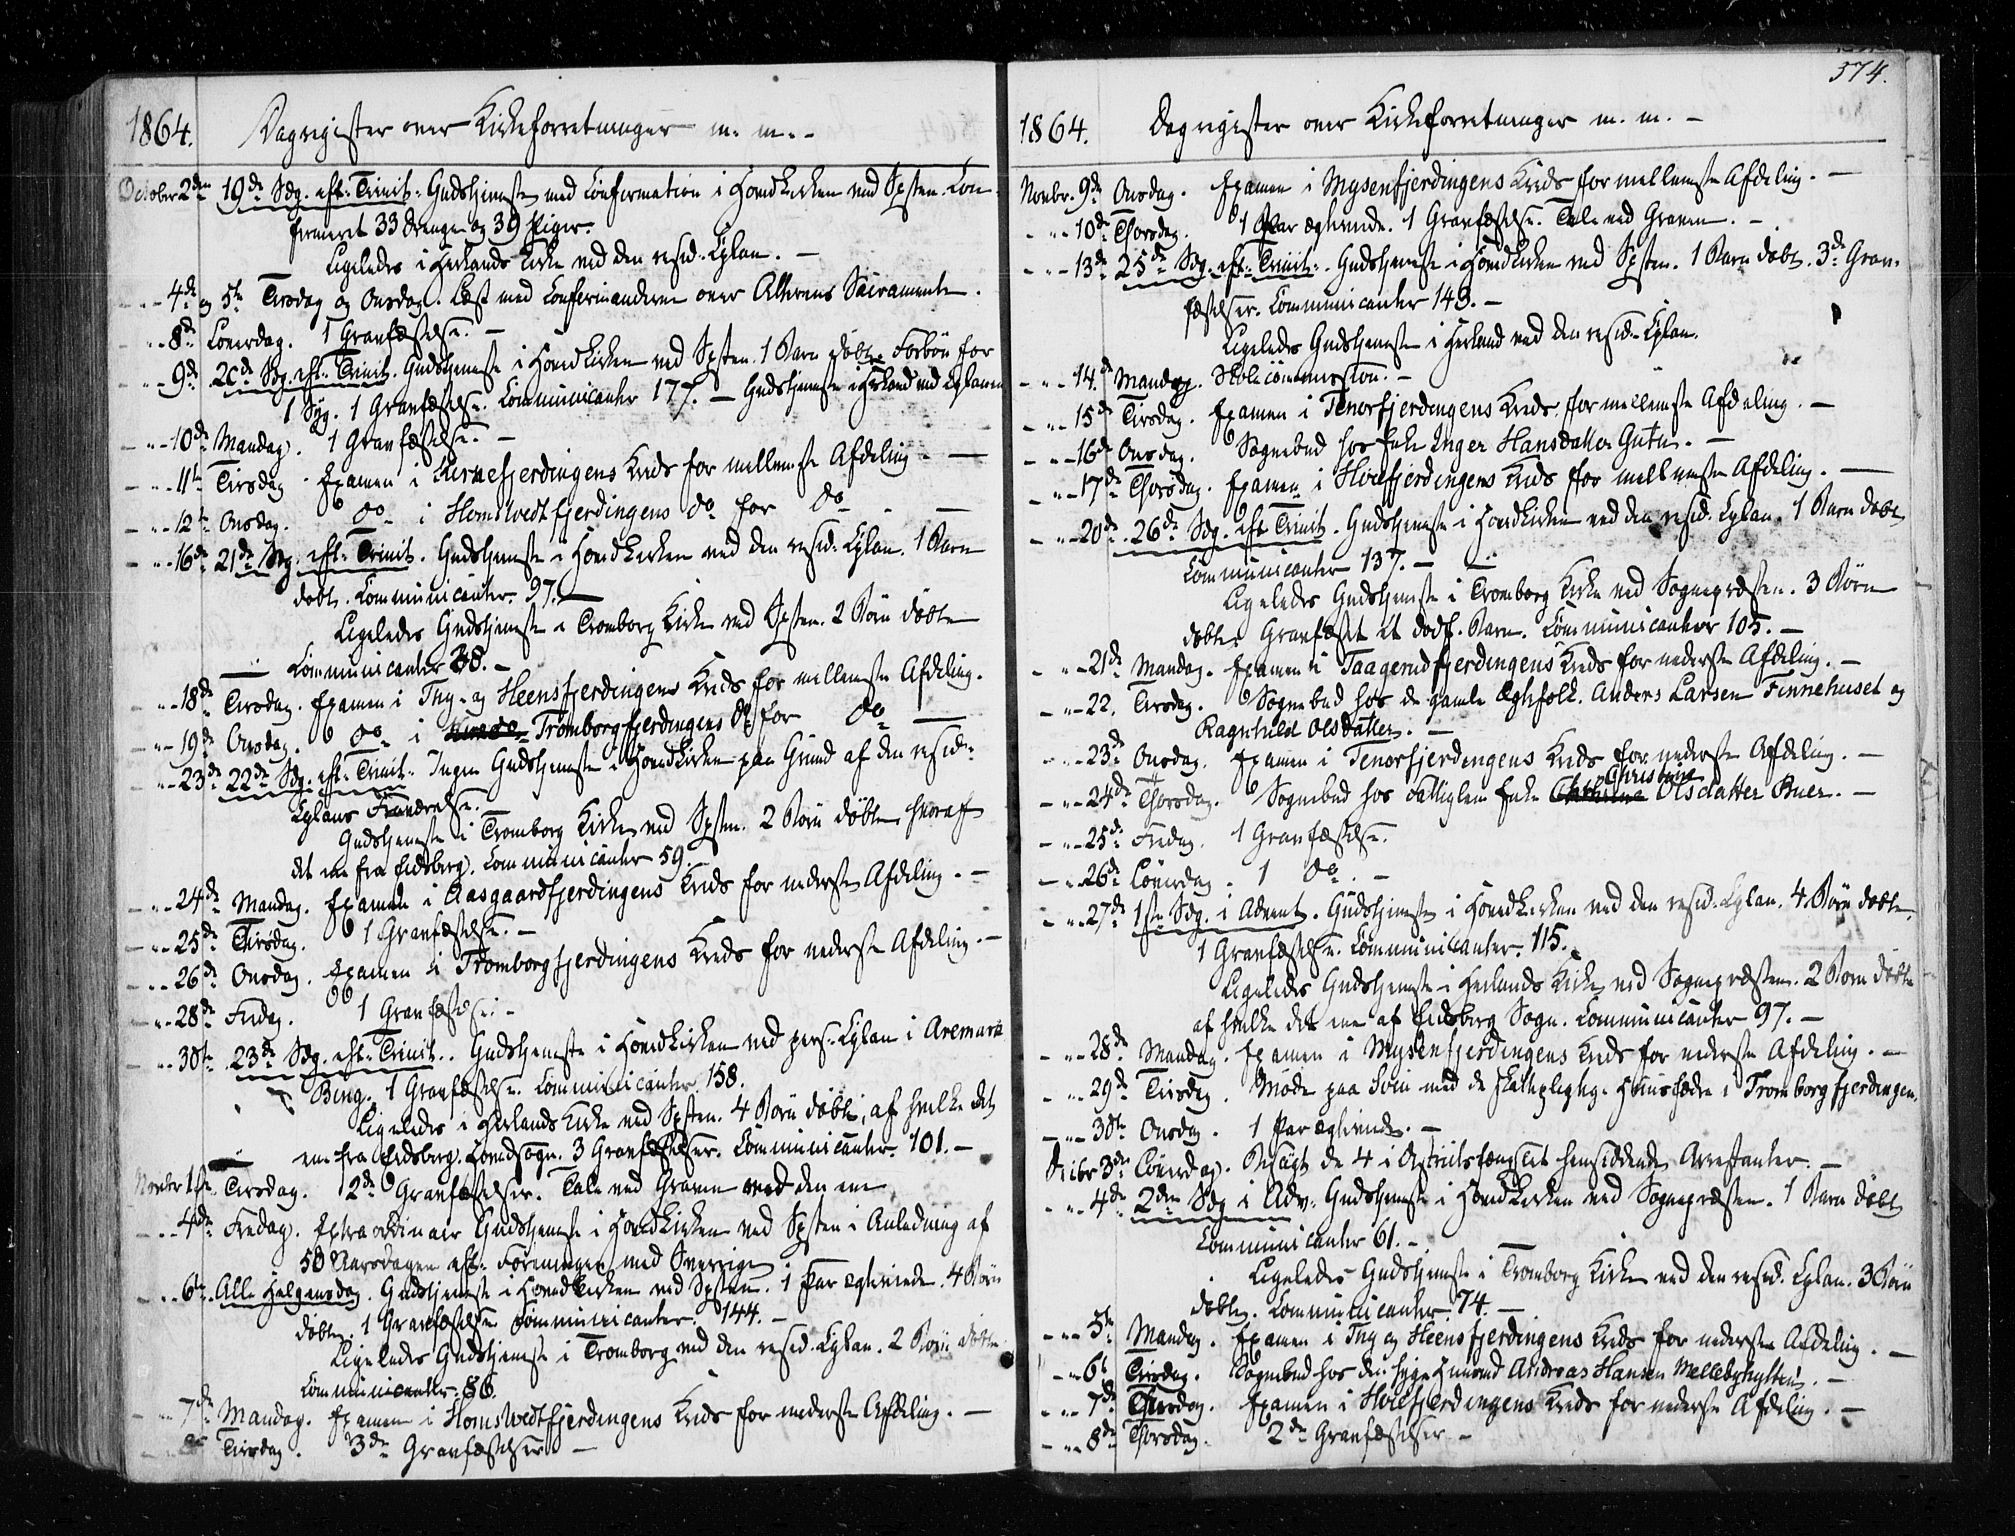 1864. Dagregister over Kirkeforretninger m. m. -
October 2den 19de Søg. eft. Trinit. Gudstjeneste med Confirmation i Hovedkirken ved Spsten. Con-
firmeret 33 Drenge og 39 Piger.
Ligeledes i Herlands Kirke ved den resid. Cplan. -
- „ - 4de og 5te Tirsdag og Onsdag. Læst med Confirmanderne over Alterens Sacramente.
- „ - 8de Løverdag. 1 Gravfæstelse. -
- „ - 9de 20de Søg. eft. Trinit. Gudstjeneste i Hovedkirken ved Spsten. 1 Barn døbt. Forbøn for
1 Syg. 1 Gravfæstelse. Communicanter 177. - Gudstjeneste i Herland ved Cplanen
- „ - 10de Mandag. 1 Gravfæstelse. -
- „ - 11te Tirsdag Examen i Kirkefjerdingens Kreds for mellemste Afdeling. -
- „ - 12te Onsdag. do i Homstvedtfjerdingens do for do -
- „ - 16de 21de Søg. eft. Trinit. Gudstjeneste i Hovedkirken ved den resid. Cplan. 1 Barn
døbt. Communicanter. 97. -
Ligeledes Gudstjeneste i Tromborg Kirke ved Spsten. 2 Børn døbte
Communicanter 38. -
- „ - 18de Tirsdag. Examen i Thy- og Heensfjerdingens Kreds for mellemste Afdeling.
- „ - 19de Onsdag. do i Tromborgfjerdingens do for do -
- „ - 23de 22de Søg. eft. Trinit. Ingen Gudstjeneste i Hovedkirken paa Grund af den resid.
Cplans Fraværelse. -
Gudstjeneste i Tromborg Kirke ved Spsten. 2 Børn døbte, hvoraf
det ene fra Eidsberg. Communicanter 59. -
- „ - 24de Mandag. Examen i Aasgaardfjerdingens Kreds for nederste Afdeling. -
- „ - 25de Tirsdag. 1 Gravfæstelse. -
- „ - 26de Onsdag. Examen i Tromborgfjerdingens Kreds for nederste Afdeling. -
- „ - 28de Fredag. 1 Gravfæstelse. -
- „ - 30te 23de Søg. eft. Trinit. Gudstjeneste i Hovedkirken ved pers. Cplan i Aremark
Bing. 1 Gravfæstelse. Communicanter. 158.
Ligeledes i Herlands Kirke ved Spsten. 4 Børn døbte, af hvilke det
ene fra Eidsberg. Hovedsogn. 3 Gravfæstelser. Communicanter. 101. -
Novbr 1ste Tirsdag. 2de Gravfæstelser. Tale ved Graven ved den ene
- „ - 4de Fredag. Extraordinair Gudstjeneste i Hovedkirken ved Spsten i Anledning af
50 Aarsdagen eft. Foreningen med Sverrige
- „ - 6te Alle Helgensdag. Gudstjeneste i Hovedkirken ved Spsten. 1 Par egteviede. 4 Børn
døbte. 1 Gravfæstelse Communicanter. 144. -
Ligeledes Gudstjeneste i Tromborg ved den resid. Cplan. 2 Børn døbte.
Communicanter. 86.
- „ - 7de Mandag. Examen i Homstvedtfjerdingens Kreds for nederste Afdeling. -
- „ - 8de Tirsdag. 3de Gravfæstelser -
374.
1864. Dagregister over Kirkeforretninger m. m. -
Novbr. 9de Onsdag. Examen i Mysenfjerdingens Kreds for mellemste Afdeling. -
- „ - 10de Thorsdag. 1 Par egteviede. 1 Gravfæstelse. Tale ved Graven. -
- „ - 13de 25de Søg. eft. Trinit. Gudstjeneste i Hovedkirken ved Spsten. 1 Barn døbt. 3de Grav-
fæstelser. Communicanter 143. -
Ligeledes Gudstjeneste i Herland ved den resid. Cplan.
- „ - 14de Mandag. Skolecommission. -
- „ - 15de Tirsdag. Examen i Tenorfjerdingens Kreds for mellemste Afdeling. -
- „ - 16de Onsdag. Sognebud hos Enke Inger Hansdatter Gutu. -
- „ - 17de Thorsdag. Examen i Hoiefjerdingens Kreds for mellemste Afdeling. -
- „ - 20de 26de Søg. eft Trinit. Gudstjeneste i Hovedkirken ved den resid. Cplan. 1 Barn døbt
Communicanter 137. -
Ligeledes Gudstjeneste i Tromborg Kirke ved Sognepræsten. 3 Børn
døbte. Gravfæstet et dødf. Barn. Communicanter 105. -
- „ - 21de Mandag. Examen i Taagerudfjerdingens Kreds for nederste Afdeling. -
- „ - 22. Tirsdag. Sognebud hos de gamle Egtefolk. Anders Larsen Finnehuset og
Ragnhild Olsdatter. -
- „ - 23de Onsdag. Examen i Tenorfjerdingens Kreds for nederste Afdeling. -
- „ - 24de Thorsdag. Sognebud hos Fattiglem Enke Cathrine Christine Olsdatter Buer. -
- „ - 25de Fredag. 1 Gravfæstelse.
- „ - 26de Løverdag. 1 do. -
- „ - 27de 1ste Søg. i Advent. Gudstjeneste i Hovedkirken ved den resid. Cplan. 4 Børn døbte.
1 Gravfæstelse. Communicanter. 115.
Ligeledes Gudstjeneste i Herlands Kirke ved Sognepræsten. 2 Børn døbte
af hvilke det ene af Eidsberg Sogn. Communicanter 97. -
- „ - 28de Mandag. Examen i Mysenfjerdingens Kreds for nederste Afdeling. -
- „ - 29de Tirsdag. Møde paa Svin med de skattepligtige Huusfædre i Tromborgfjerdingen.
- „ - 30te Onsdag. 1 Par egteviede. -
Decbr 3die Løverdag. Besøgt de 4 i Districtsfængslet hensiddende Arrestanter. -
- „ - 4de 2den Søg i Adv. Gudstjeneste i Hovedkirken ved Sognepræsten. 1 Barn døbt
Communicanter 61. -
Ligeledes Gudstjeneste i Tromborg Kirke ved den resid. Cplan. 3 Børn
døbte. Communicanter. 74. -
- „ - 5te Mandag. Examen i Thy og Heensfjerdingens Kreds for nederste Afdeling. -
- „ - 6te Tirsdag. Sognebud hos den syge Huusmd Andreas Hansen Mellebyhytten. -
- „ - 7de Onsdag. Examen i Hoiefjerdingens Kreds for nederste Afdeling. -
- „ - 8de Thorsdag. 2de Gravfæstelser -